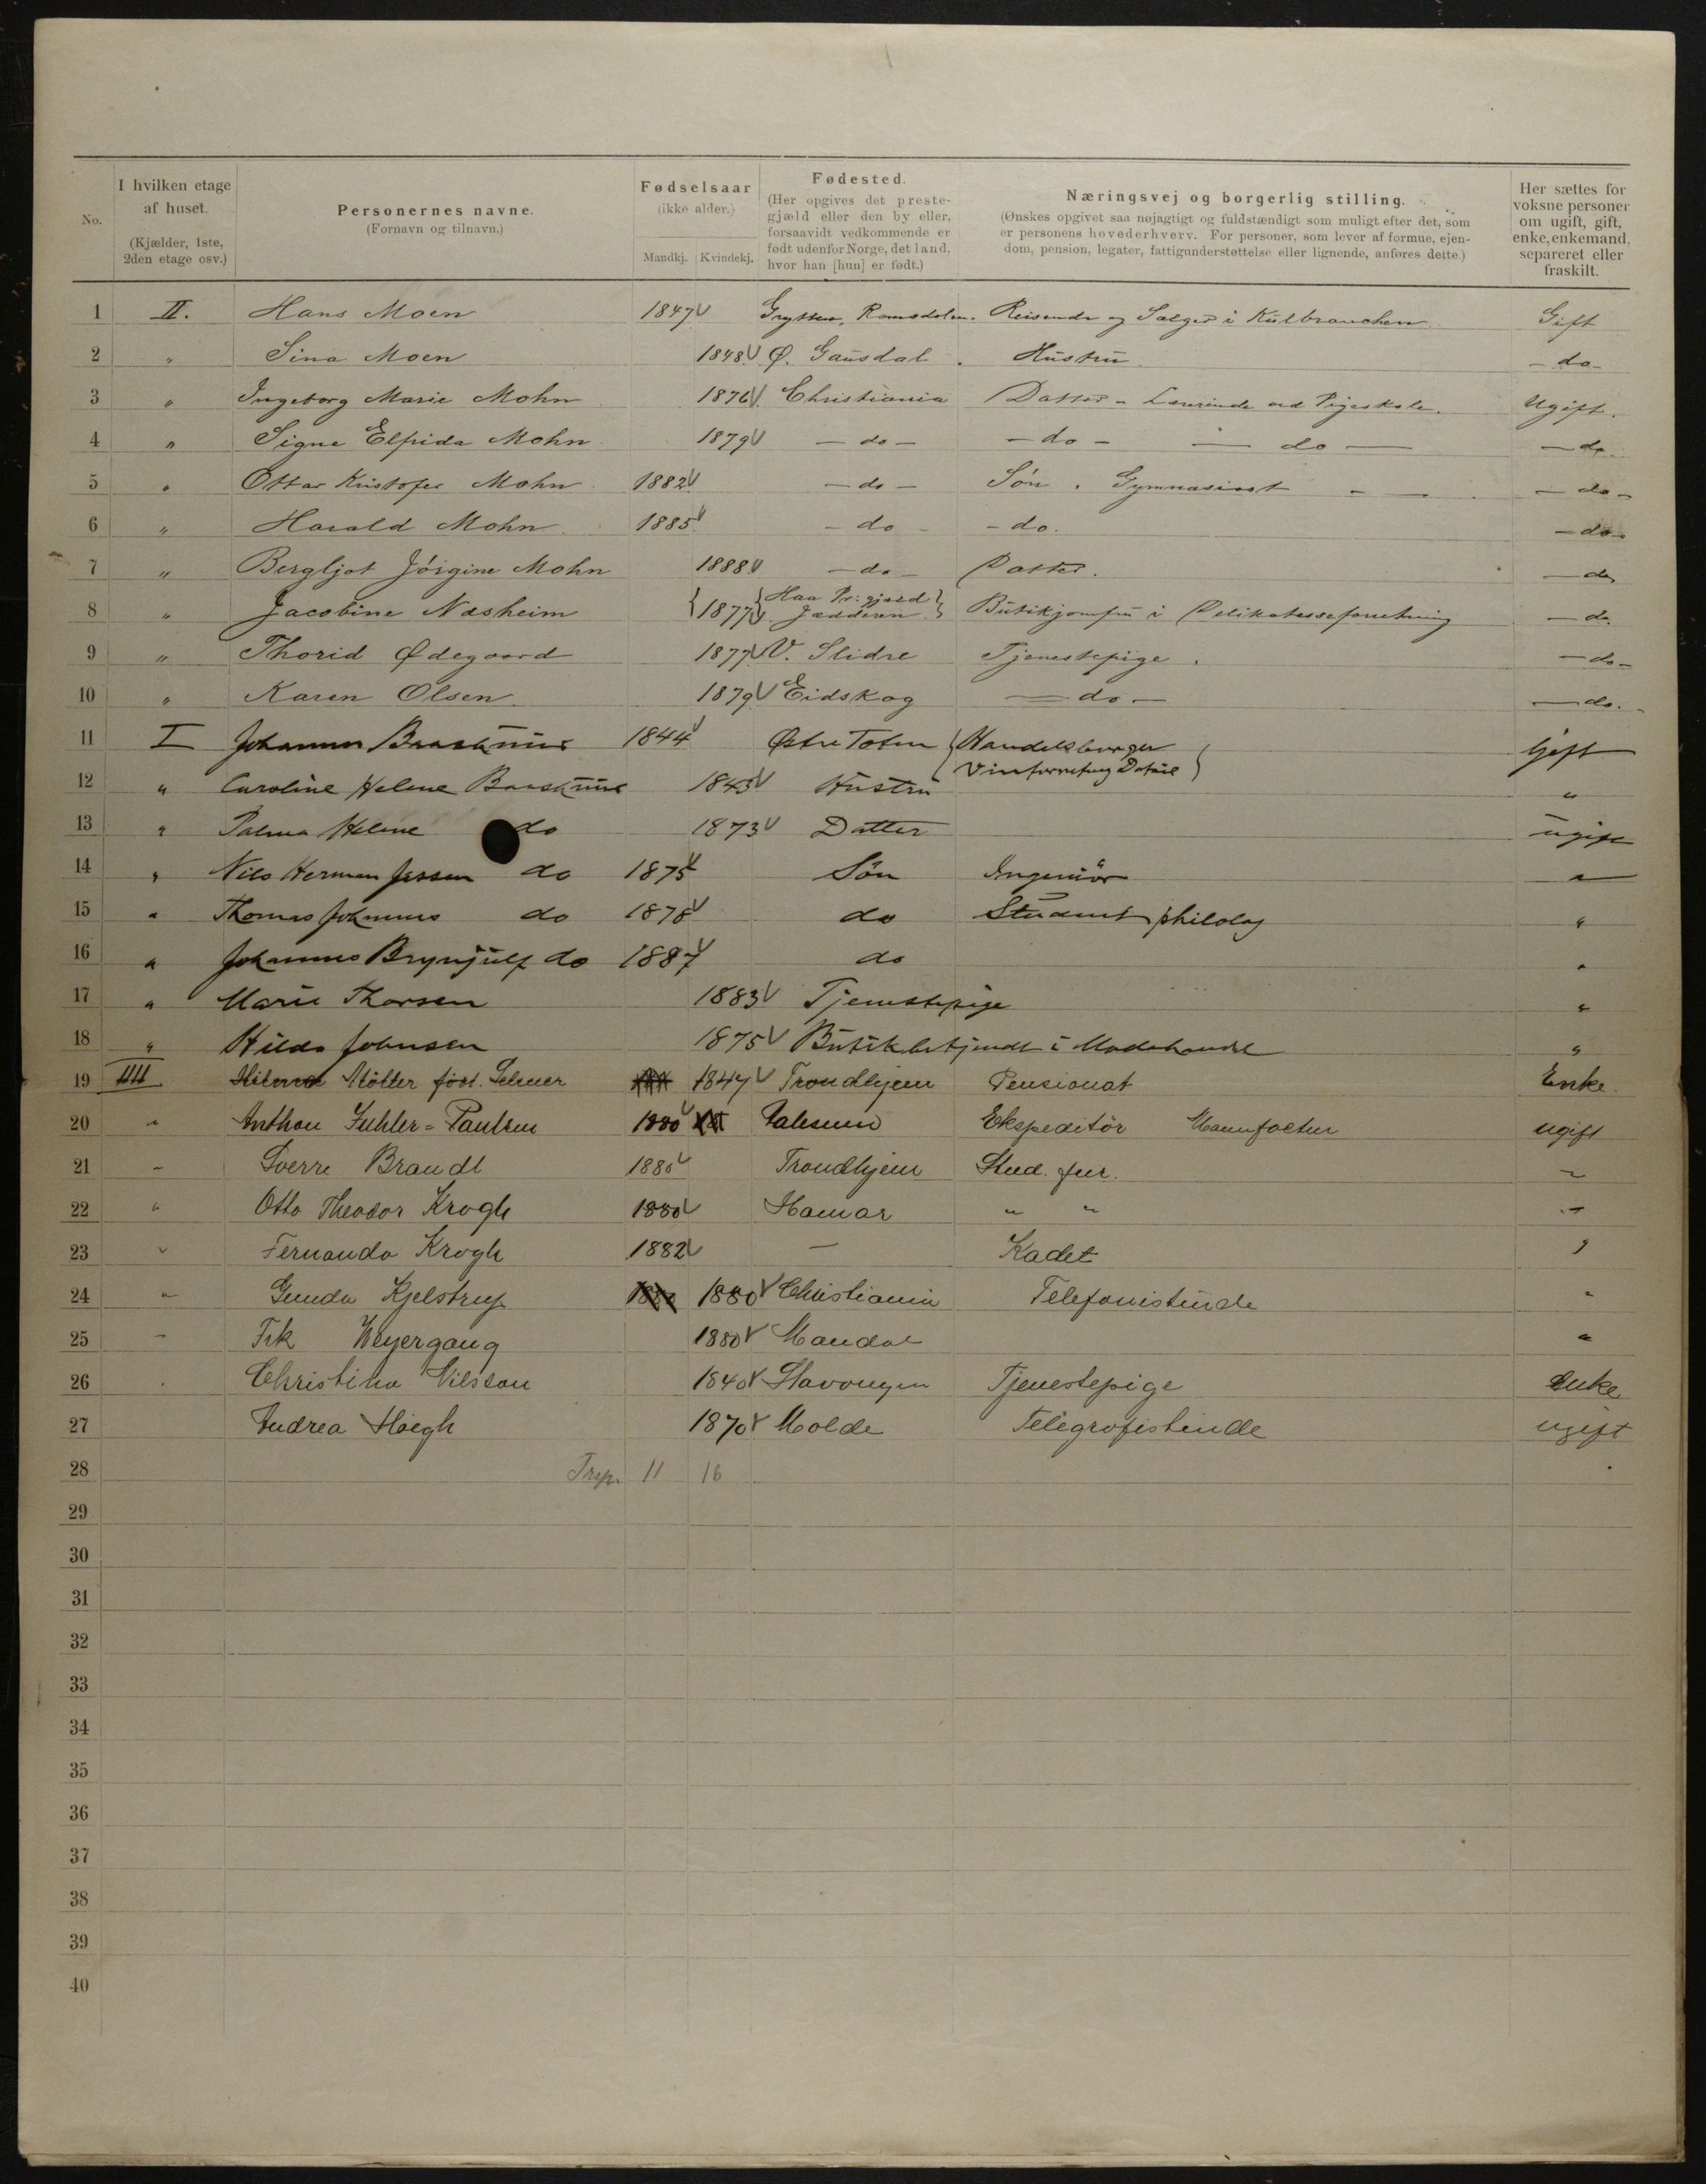 No.
I hvilken etage
af huset.
(Kjælder, 1ste,
2den etage osv.)
Personernes navne.
(Fornavn og tilnavn.)
Fødselsaar
(ikke alder.)
Mandkj. Kvindekj.
Fødested.
(Her opgives det preste-
gjæld eller den by eller,
forsaavidt vedkommende er
født udenfor Norge, det land,
hvor han [hun] er født.)
Næringsvej og borgerlig stilling.
(Ønskes opgivet saa nøjagtigt og fuldstændigt som muligt efter det, som
er personens hovederhverv. For personer, som lever af formue, ejen-
dom, pension, legater, fattigunderstøttelse eller lignende, anføres dette.)
Her sættes for
voksne personer
om ugift, gift,
enke, enkemand,
separeret eller
fraskilt.
1 II. Hans Moen 1847 Grytten, Romsdalen. Reisende og Sælger i Kulbranchen Gift
2 " Sina Moen 1848 Ø. Gausdal. Hustru -do-
3 " Ingeborg Marie Mohn 1876 Christiania Datter - Lærerinde ved Pigeskole. Ugift.
4 " Signe Elfrida Mohn 1879 -do- -do- - do - -do-
5 " Ottar Kristofer Mohn 1882 -do- Søn. Gymnasiast - - -do-
6 " Harald Mohn 1885 -do- -do. -do-
7 " Bergljot Jörgine Mohn 1888 -do- Datter. -do-
8 " Jacobine Næsheim {1877 {Haa Pr:gjæld Jædderen} Butikjomfru i Delikatesseforretning -do.
9 " Thorid Ødegaard 1877 V. Slidre Tjenestepige. -do-
10 " Karen Olsen 1879 Eidskog -do- -do.-
11 I Johannes 1844 Østre Toten {Handelsborger Gift
12 " Caroline Helene 1843 Hustru Vinforretning Detail}"
13 " Palma Helene do 1873 Datter ugift
14 " Nils Herman Jessen do 1875 Sön Ingeniör "
15 " Thomas Johannes do 1878 do Student philolog "
16 " Johannes Brynjulf do 1887 do "
17 " Marie Thorsen 1883 Tjenestepige "
18 " Hilda Johnsen 1875 Butikbetjendt i Modehandel "
19 III Möller föd. Selmer 1847 Trondhjem Pensionat Enke.
20 " Anthon Paulsen 1880 Aalesund Ekspeditör Manufactur ugift
21 - Sverre Brandt 1880 Trondhjem Stud. jur. -
22 " Otto Theodor Krogh 1880 Hamar " " -
23 " Fernando Krogh 1882 - Kadet "
24 " Gunda Kjelstrup 1880 1880 Christiania Telefonistinde "
25 - Frk Weyergang 1880 Mandal "
26 . Christina Nilsson 1840 Stavanger Tjenestepige Enke
27 Andrea Höegh 1870 Molde Telegrafistinde ugift
28 11 16
29
30
31
32
33
34
35
36
37
38
39
40